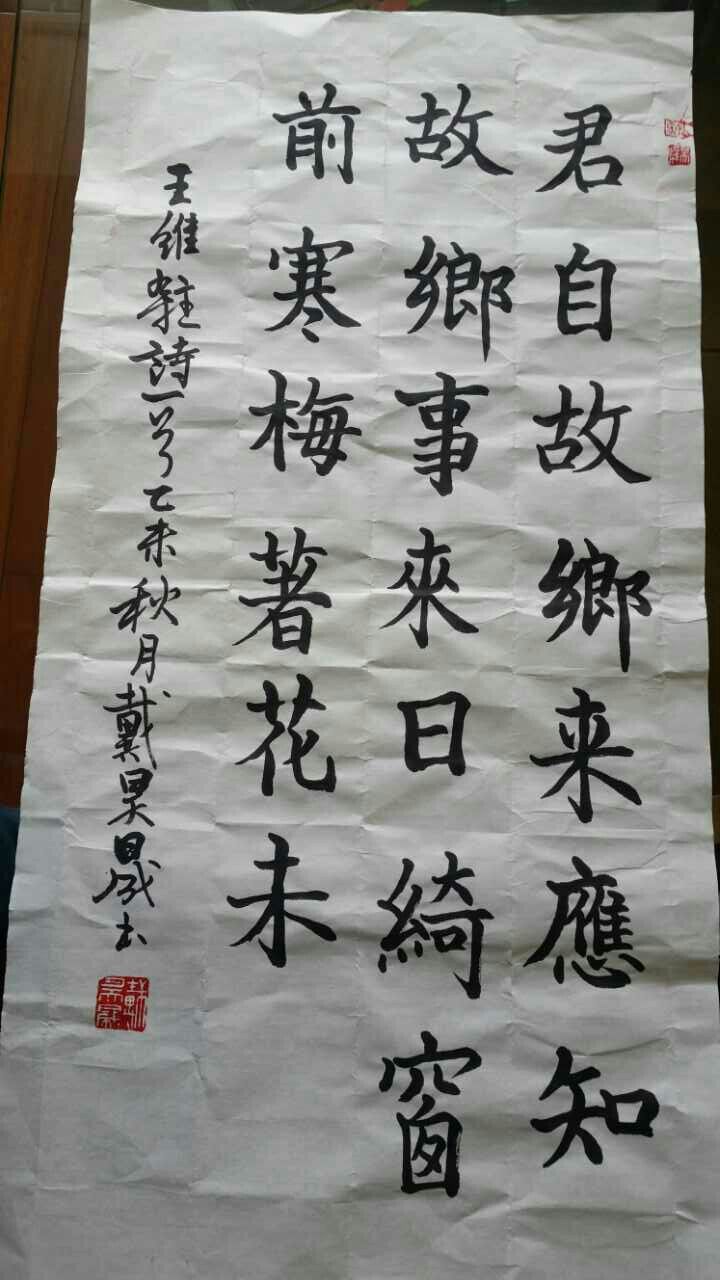 君自故鄉来應知
故鄉事來日綺窗
前寒梅著花未
王維雜詩一首乙未秋月戴昊晟书